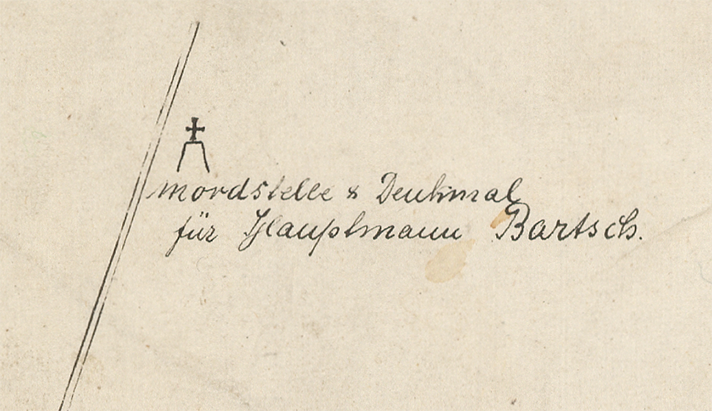 Mordstelle & Denkmal
für Hauptmann Bartsch.